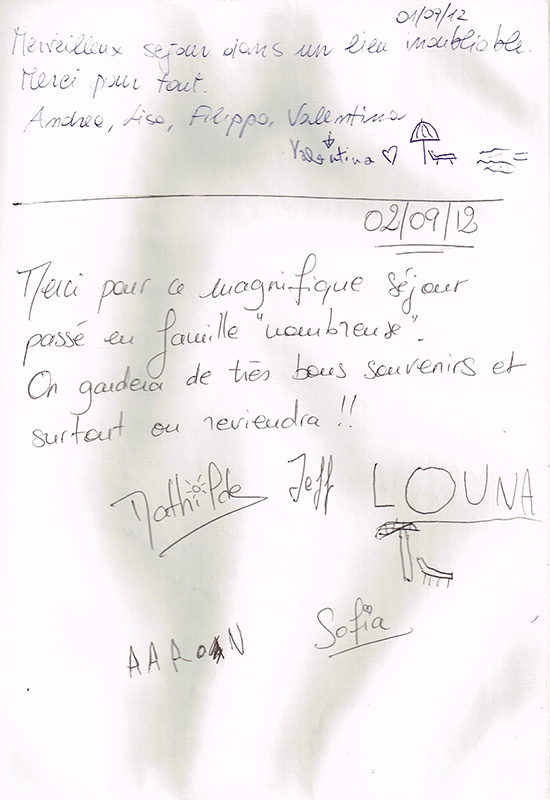 01/09/12
Merveilleux sejour dans un lieu inoubliable.
Merci pour tout.
Andrea, Lisa, Filippo, Valentina
Valentina
02/09/12
Merci pour ce magnifique séjour
passé en famille "nombreuse".
On gardera de très bons souvenirs et
surtout on reviendra !!
Mathilde Jeff LOUNA
AARON Sofia